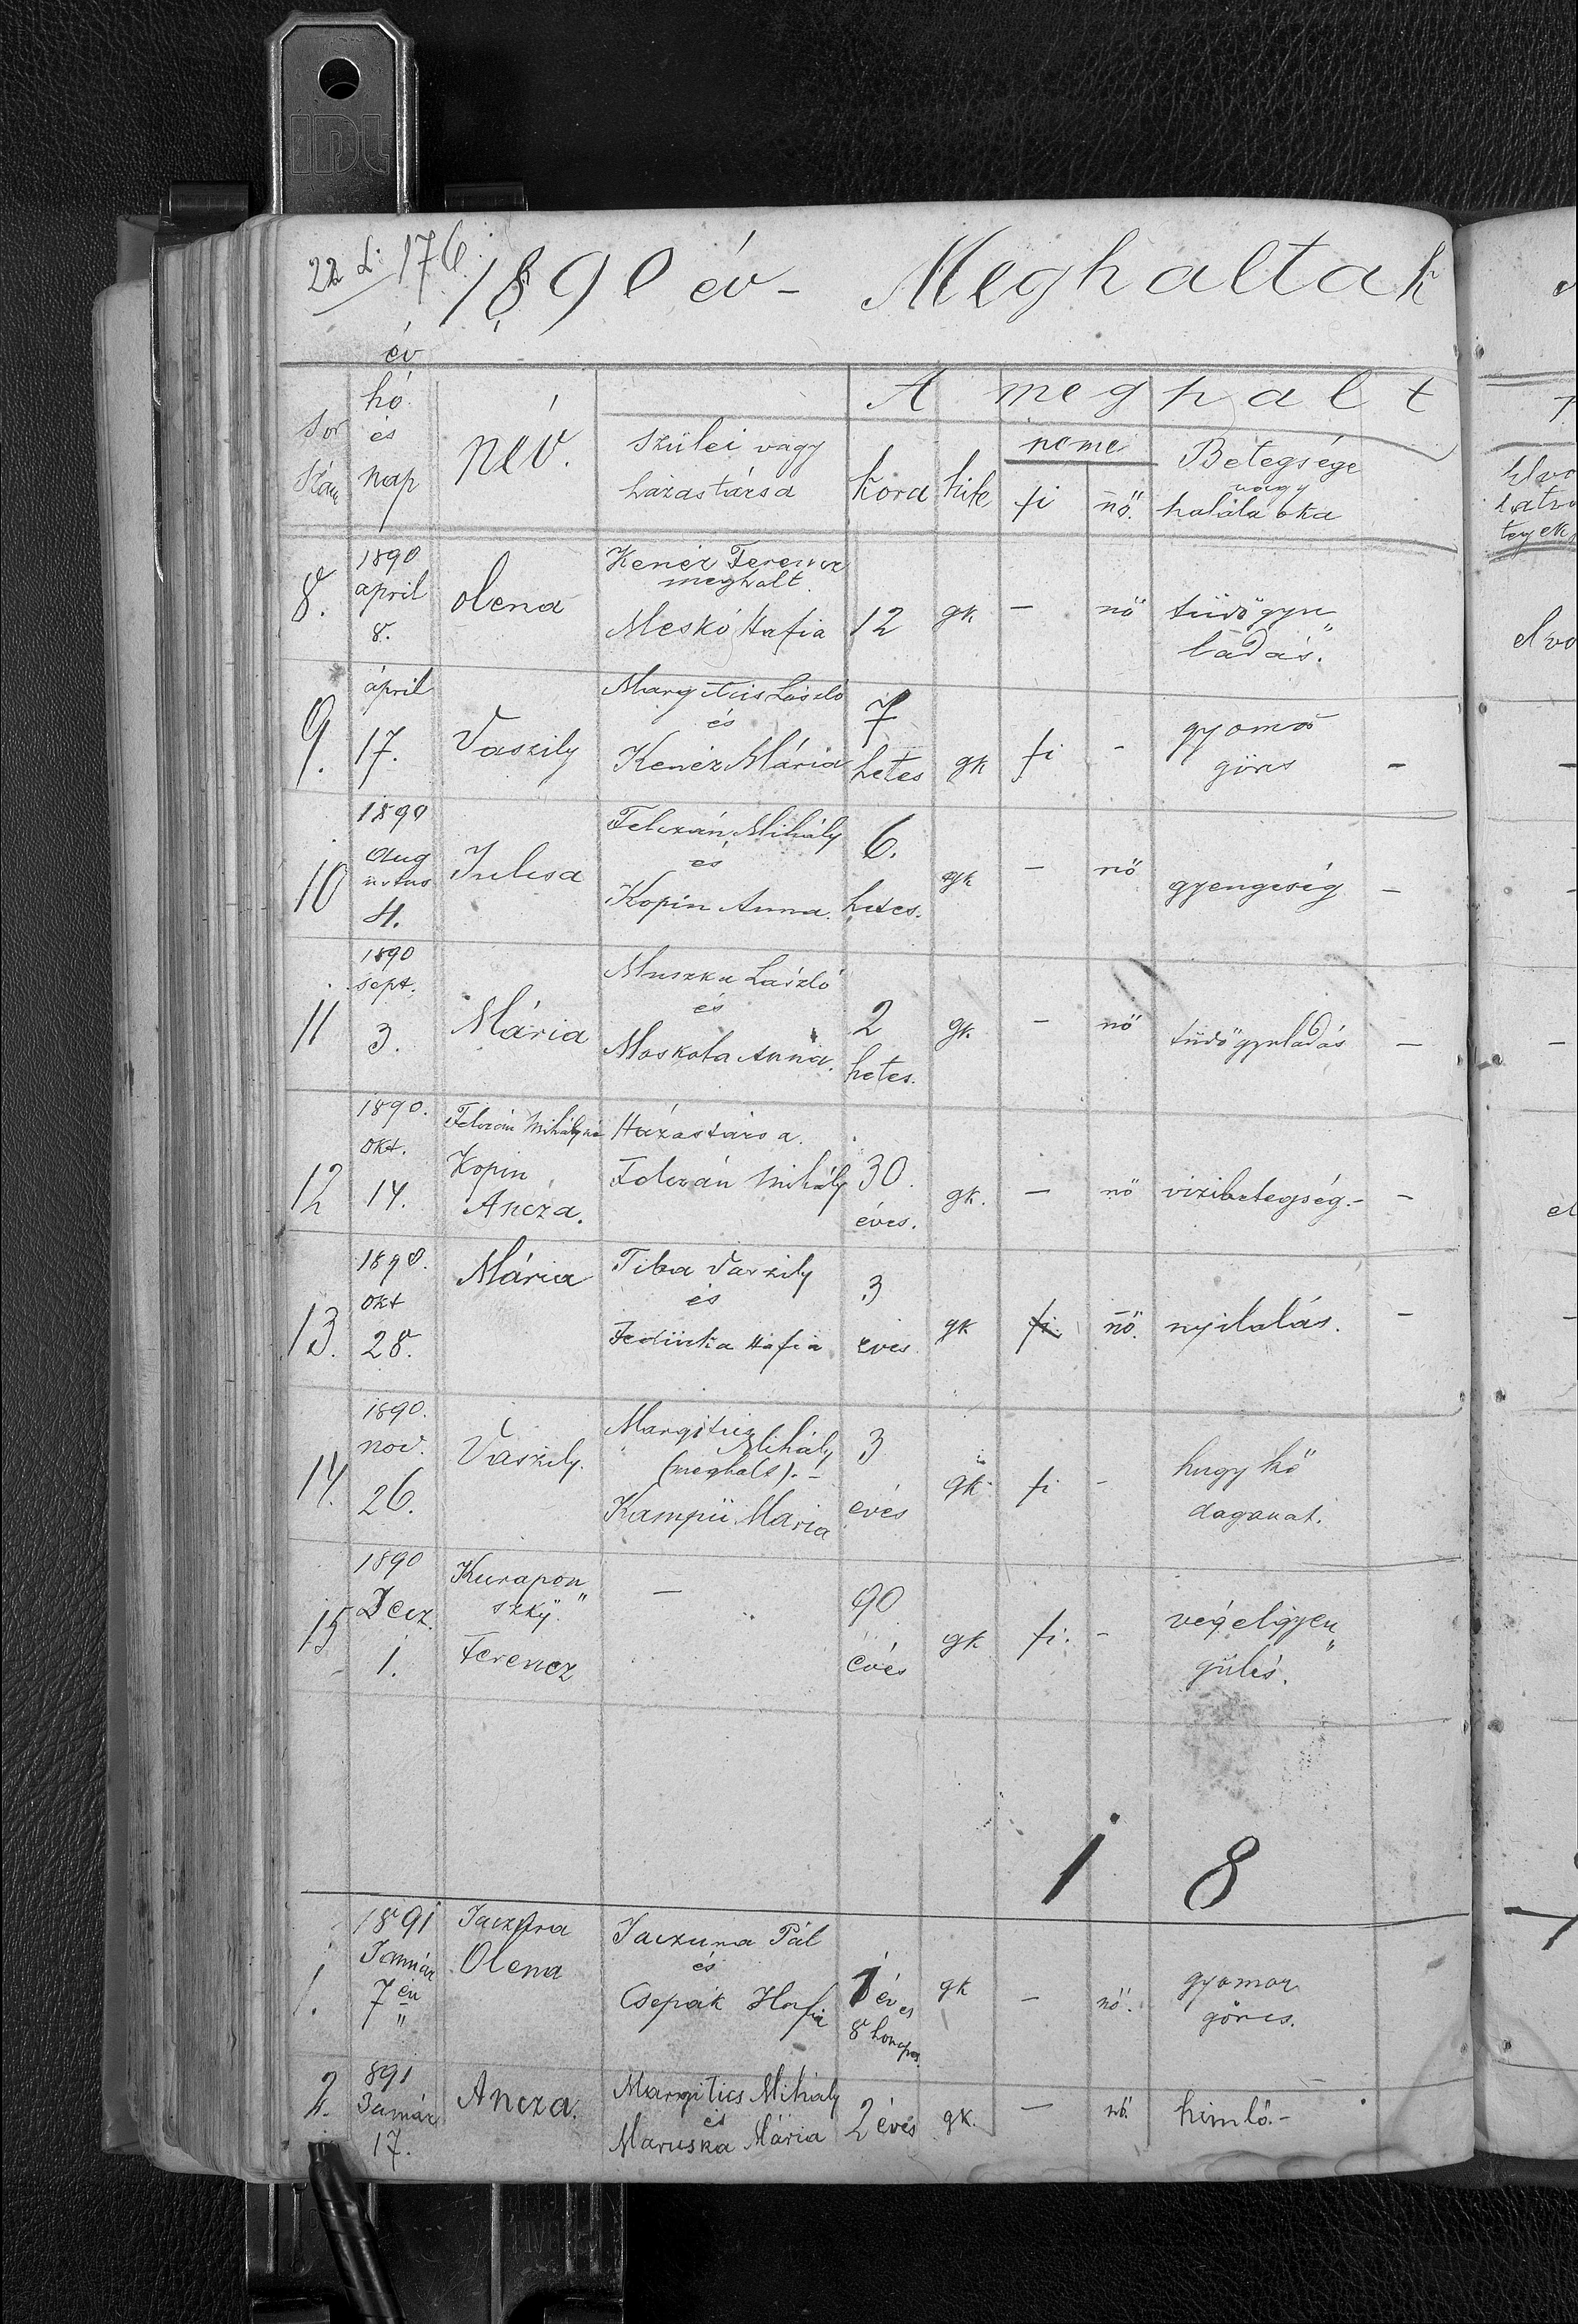 IDL
22 L: 176.
1890 év - Meghaltak
Sor szám
év hó és nap
név.
A meghalt
szülei vagy házastársa
kora
hite
neme
fi
nő.
Betegsége vagy halála oka
8.
1890 april 8.
Olena
Kenéz Ferencz meghalt.
Meskó Hafia
12
gk
-
nő
tüdőgyu„
ladás.
9.
ápril 17.
Vaszily
Margitics László
és
Kenéz Mária
7 hetes
gk
fi
-
gyomor
görcs
-
10
1890 augustus 4.
Julcsa
Felczán Mihály
és
Kopin Anna.
6. hetes.
gk
-
nő
gyengeség
-
11
1890 sept. 3.
Mária
Muszka László
és
Moskola Anna.
2 hetes.
gk.
-
nő
tüdőgyuladás
-
12
1890. okt. 14.
Felczán Mihályné
Kopin
Ancza.
Házastársa.
Felczán Mihály
30. éves.
gk.
-
nő
vizibetegség.-
-
13.
1890. okt 28.
Mária
Tiba Vaszily
és
Hafia
3 éves
gk
fi
nő.
nyilalás.
-
14.
1890. nov. 26.
Vaszily.
Margitics Mihály
(meghalt). -
Mária
3 éves
gk
fi
-
hugy kő
daganat.
15
1890 Decz. 1.
Kurapon„
szky
Ferencz
-
90 éves
gk
fi.
-
végelgyen„
gülés.
1 8
1.
1891 Január 7én
Jaczura
Olena
Jaczura Pál
és
Csepák Hafia
1 éves
8 honapos.
gk
-
nő.
gyomor
görcs.
2.
891 Január 17.
Ancza.
Margitics Mihály
és
Maruska Mária
2 éves
gk.
-
nő.
himlő.-